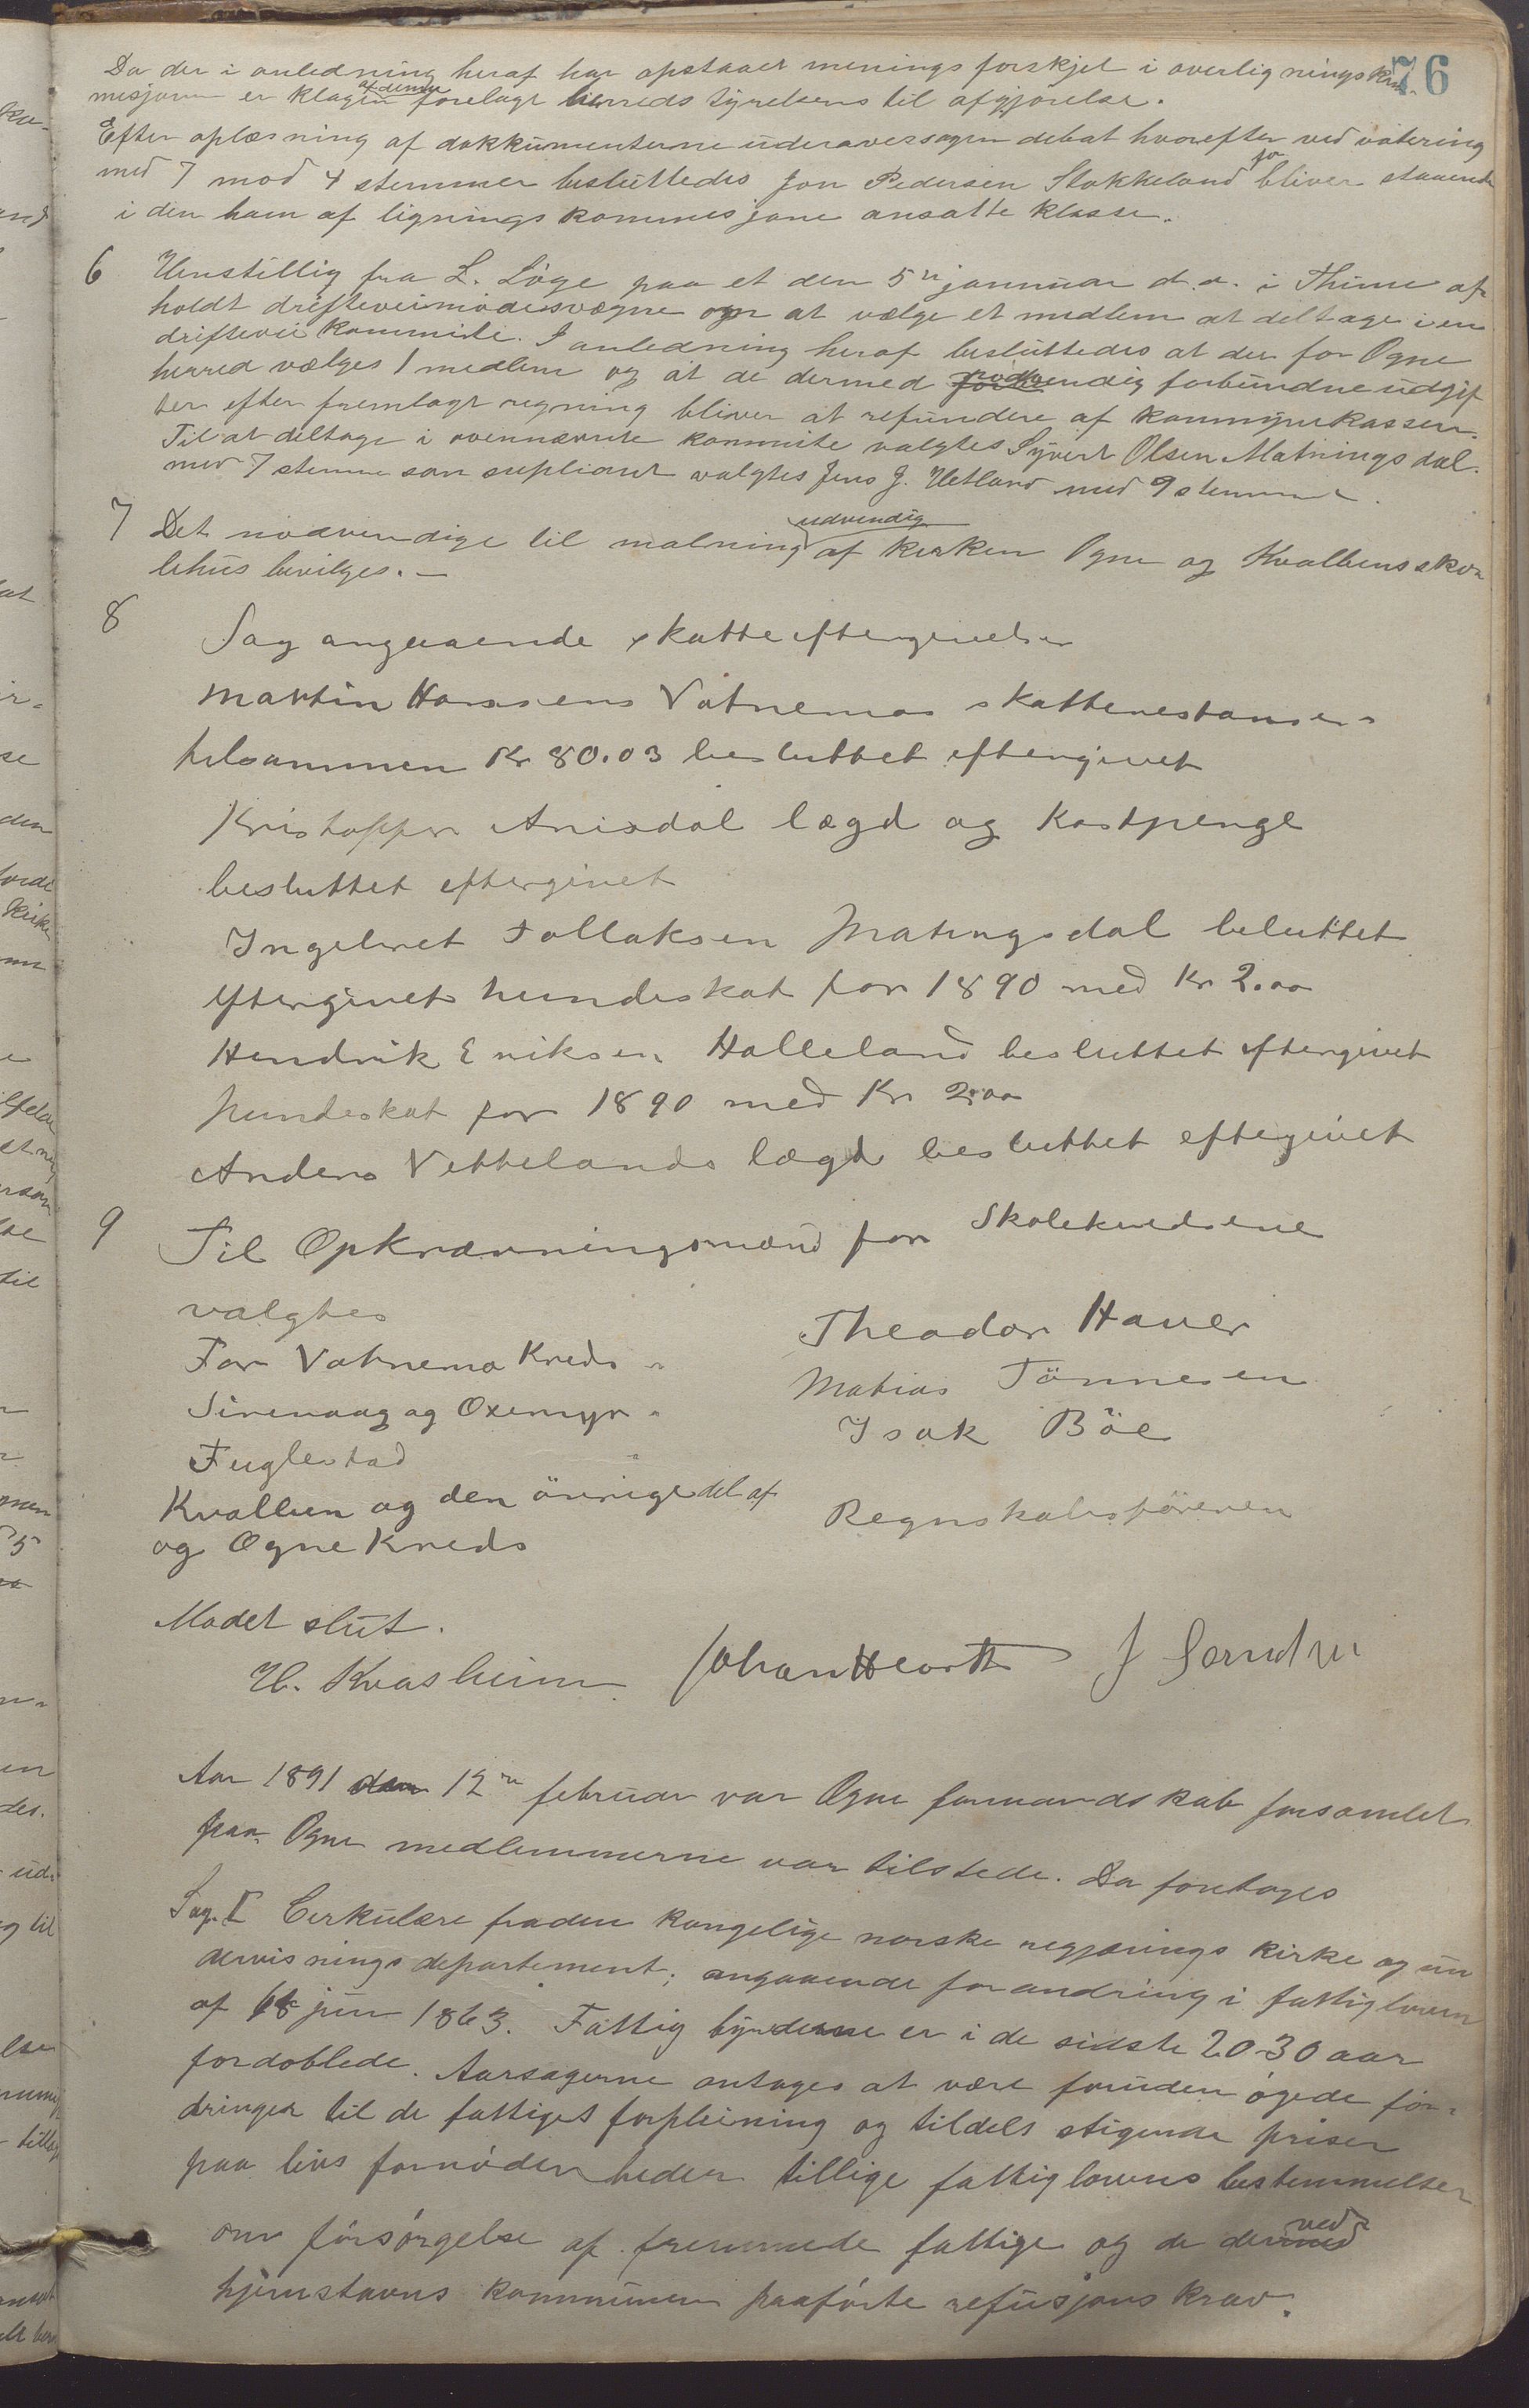 76
Da der i anledning heraf har opstaaet menings forskjel i overligningskom-
misjonen er klagen af denne forelagt herreds styrelsens til afgjørelse.
Efter oplæsning af dokkumenterne udera versagen debat hvorefter ved votering
med 7 mod 4 stemmer besluttedes Jon Pedersen Stokkeland for bliver staaende
i den ham af ligningskommisjone ansatte klasse.
6 Henstillig fra L. Löge paa et den 5te januar d.a. i Thime af-
holdt drifteveimödesvægne om at vælge et medlem at deltage i en
driftevei kommite. I anledning heraf besluttedes at der for Ogne
herred vælges 1 medlem og at de dermed nødvendig forbundne udgif
ter efter fremlagt regning bliver at refundere af kommunekassen.
Til at deltage i ovennævnte kommite valgtes Syvert Olsen Matningsdal.
med 7 stemme som supliant valgtes Jens J. Hetland med 9 stemmer.
7 Det nødvendige til malning udvendig af kirken Ogne og Kvalbens sko-
lehus bevilges. —
8 Sag angaaende skatteeftergivelse
Martin Hanssens Vatnemos skatterestanser
tilsammen Kr 80.03 besluttet eftergivet
Kristoffer Anisdal lægd og Kostpenge
besluttet eftergivet
Ingebret Tollaksen Matingsdal beluttet
eftergivet hundeskat for 1890 med Kr 2.00
Hendrik Eriksen Halleland besluttet eftergivet
hundeskat for 1890 med Kr 2.00
Anders Vettelands lægd besluttet eftegivet
9 Til Opkrævningsmænd for Skolekredsene
valgtes
For Vatnemo Kreds - Theodor Haver
Sirevaag og Oxemyr - Matias Tönnesen
Fuglestad " Isak Böe
Kvalben og den övrige del af
og Ogne Kreds Regnskabsföreren
Mødet slut.
H. Kvasheim Johan Hlorth J
Aar 1891 den 12te februar var Ogne formandskab forsamlet
paa Ogne medlemmerne var tilstede. Da foretages
Sag. I Cerkulære fra den kongelige norske regjærings kirke og un
dervisnings departement; angaaende forandring i fattigloven
af 6 juni 1863. Fattig byrderne er i de sidste 20-30 aar
fordoblede. Aarsagerne antages at være foruden øgede for-
dringer til de fattiges forpleining og tildels stigende priser
paa livs fornødenheder tillige fattiglovens bestemmelser
om forsørgelse af fremmede fattige og de derved
hjemstavns kommunen paaførte refusjons krav.